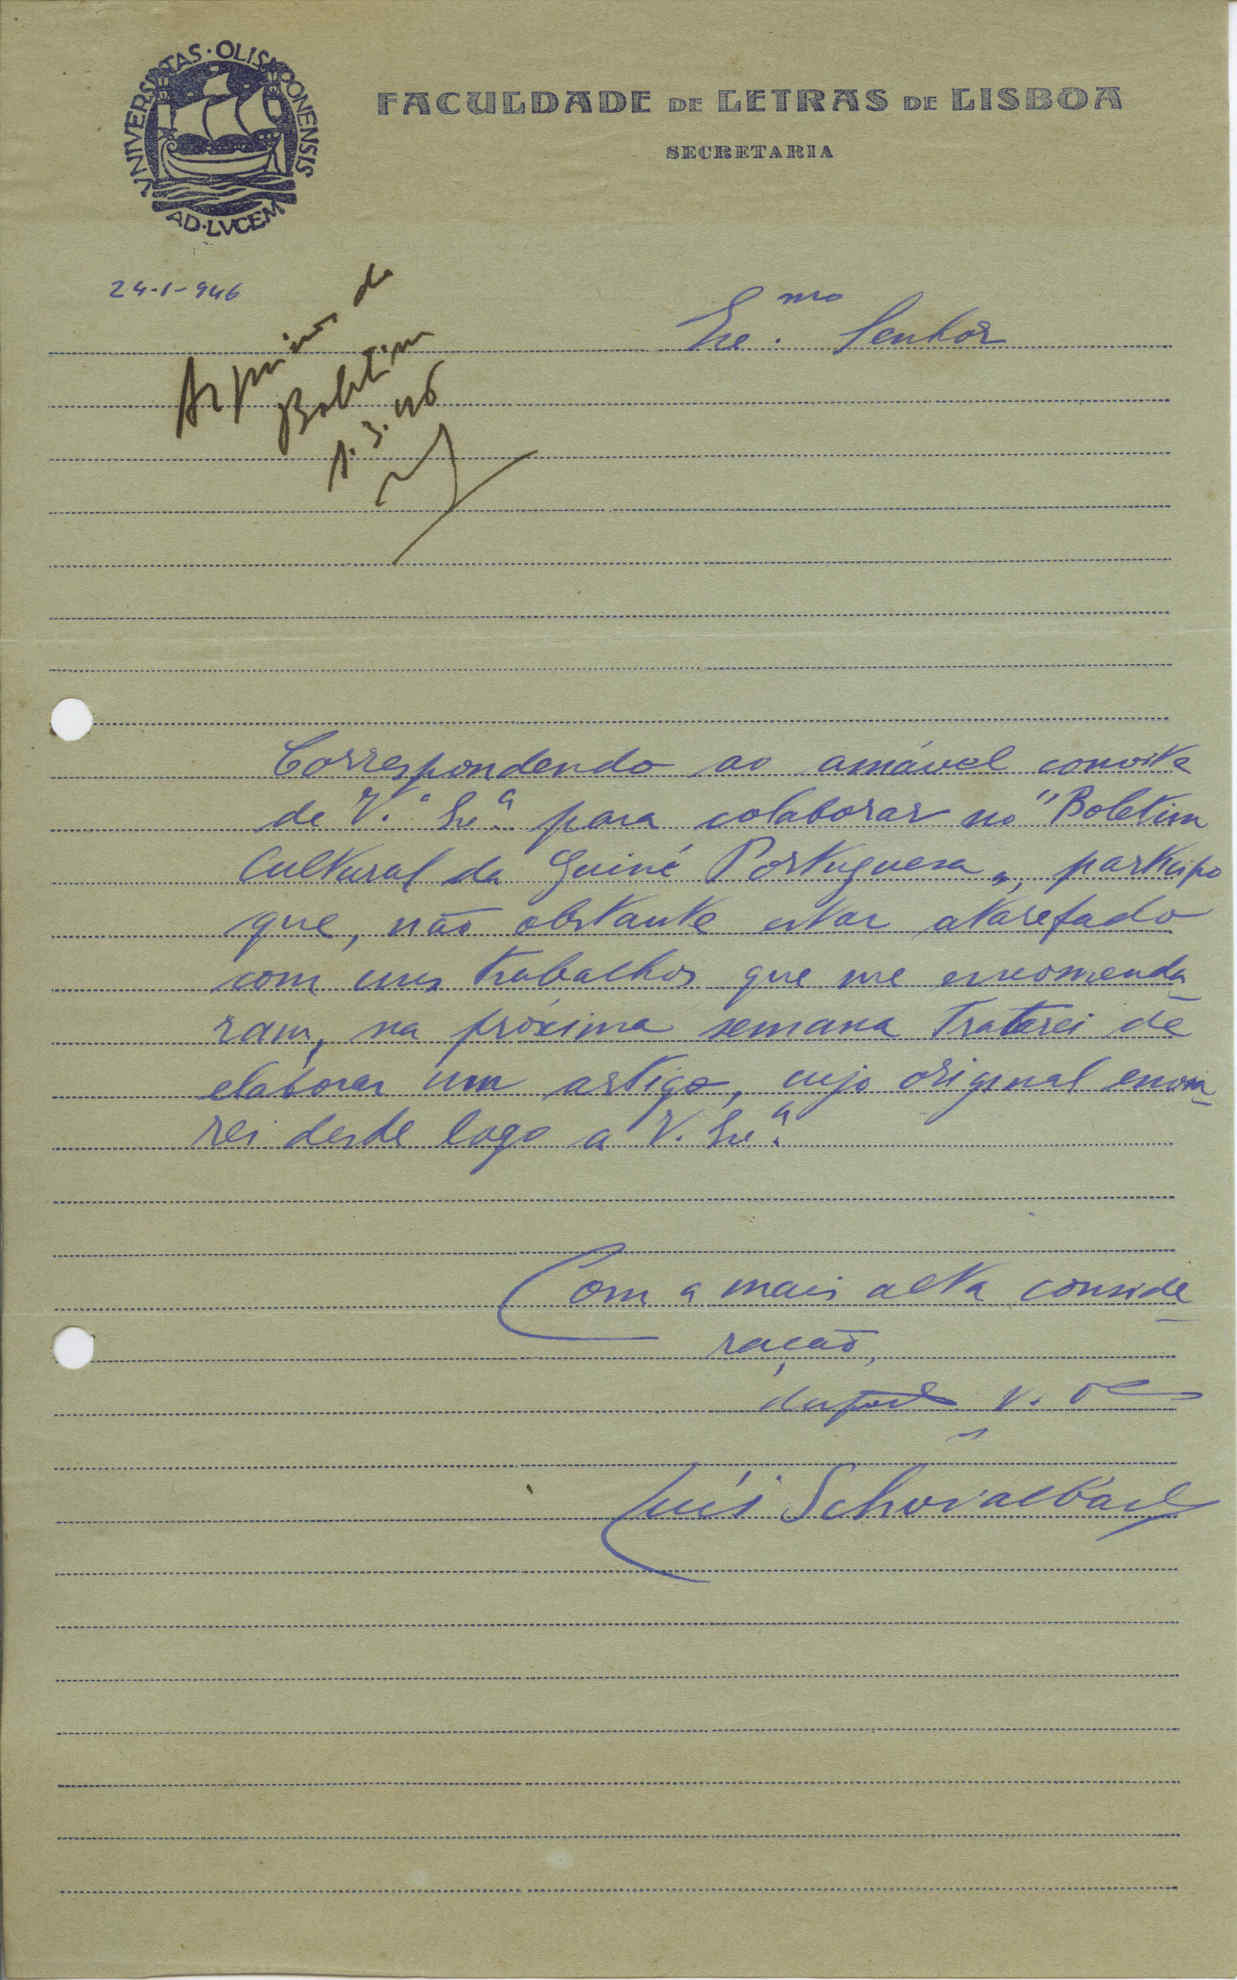 VNIVERSITAS·OLISIPONENSIS
AD·LVCEM
FACULDADE DE LETRAS DE LISBOA
SECRETARIA
24-1-946
do
Boletim
1.3.46
Exc.mo Senhor
Correspondendo ao amável convite
de V.ª Exª para colaborar no "Boletim
Cultural da Guiné Portuguesa", participo
que, não obstante estar atarefado
com uns trabalhos que me encomenda
ram, na próxima semana tratarei de
elaborar um artigo, cujo original envia-
rei desde logo a V. Exª.
Com a mais alta conside
ração,
de V.
Luís Schwalbach